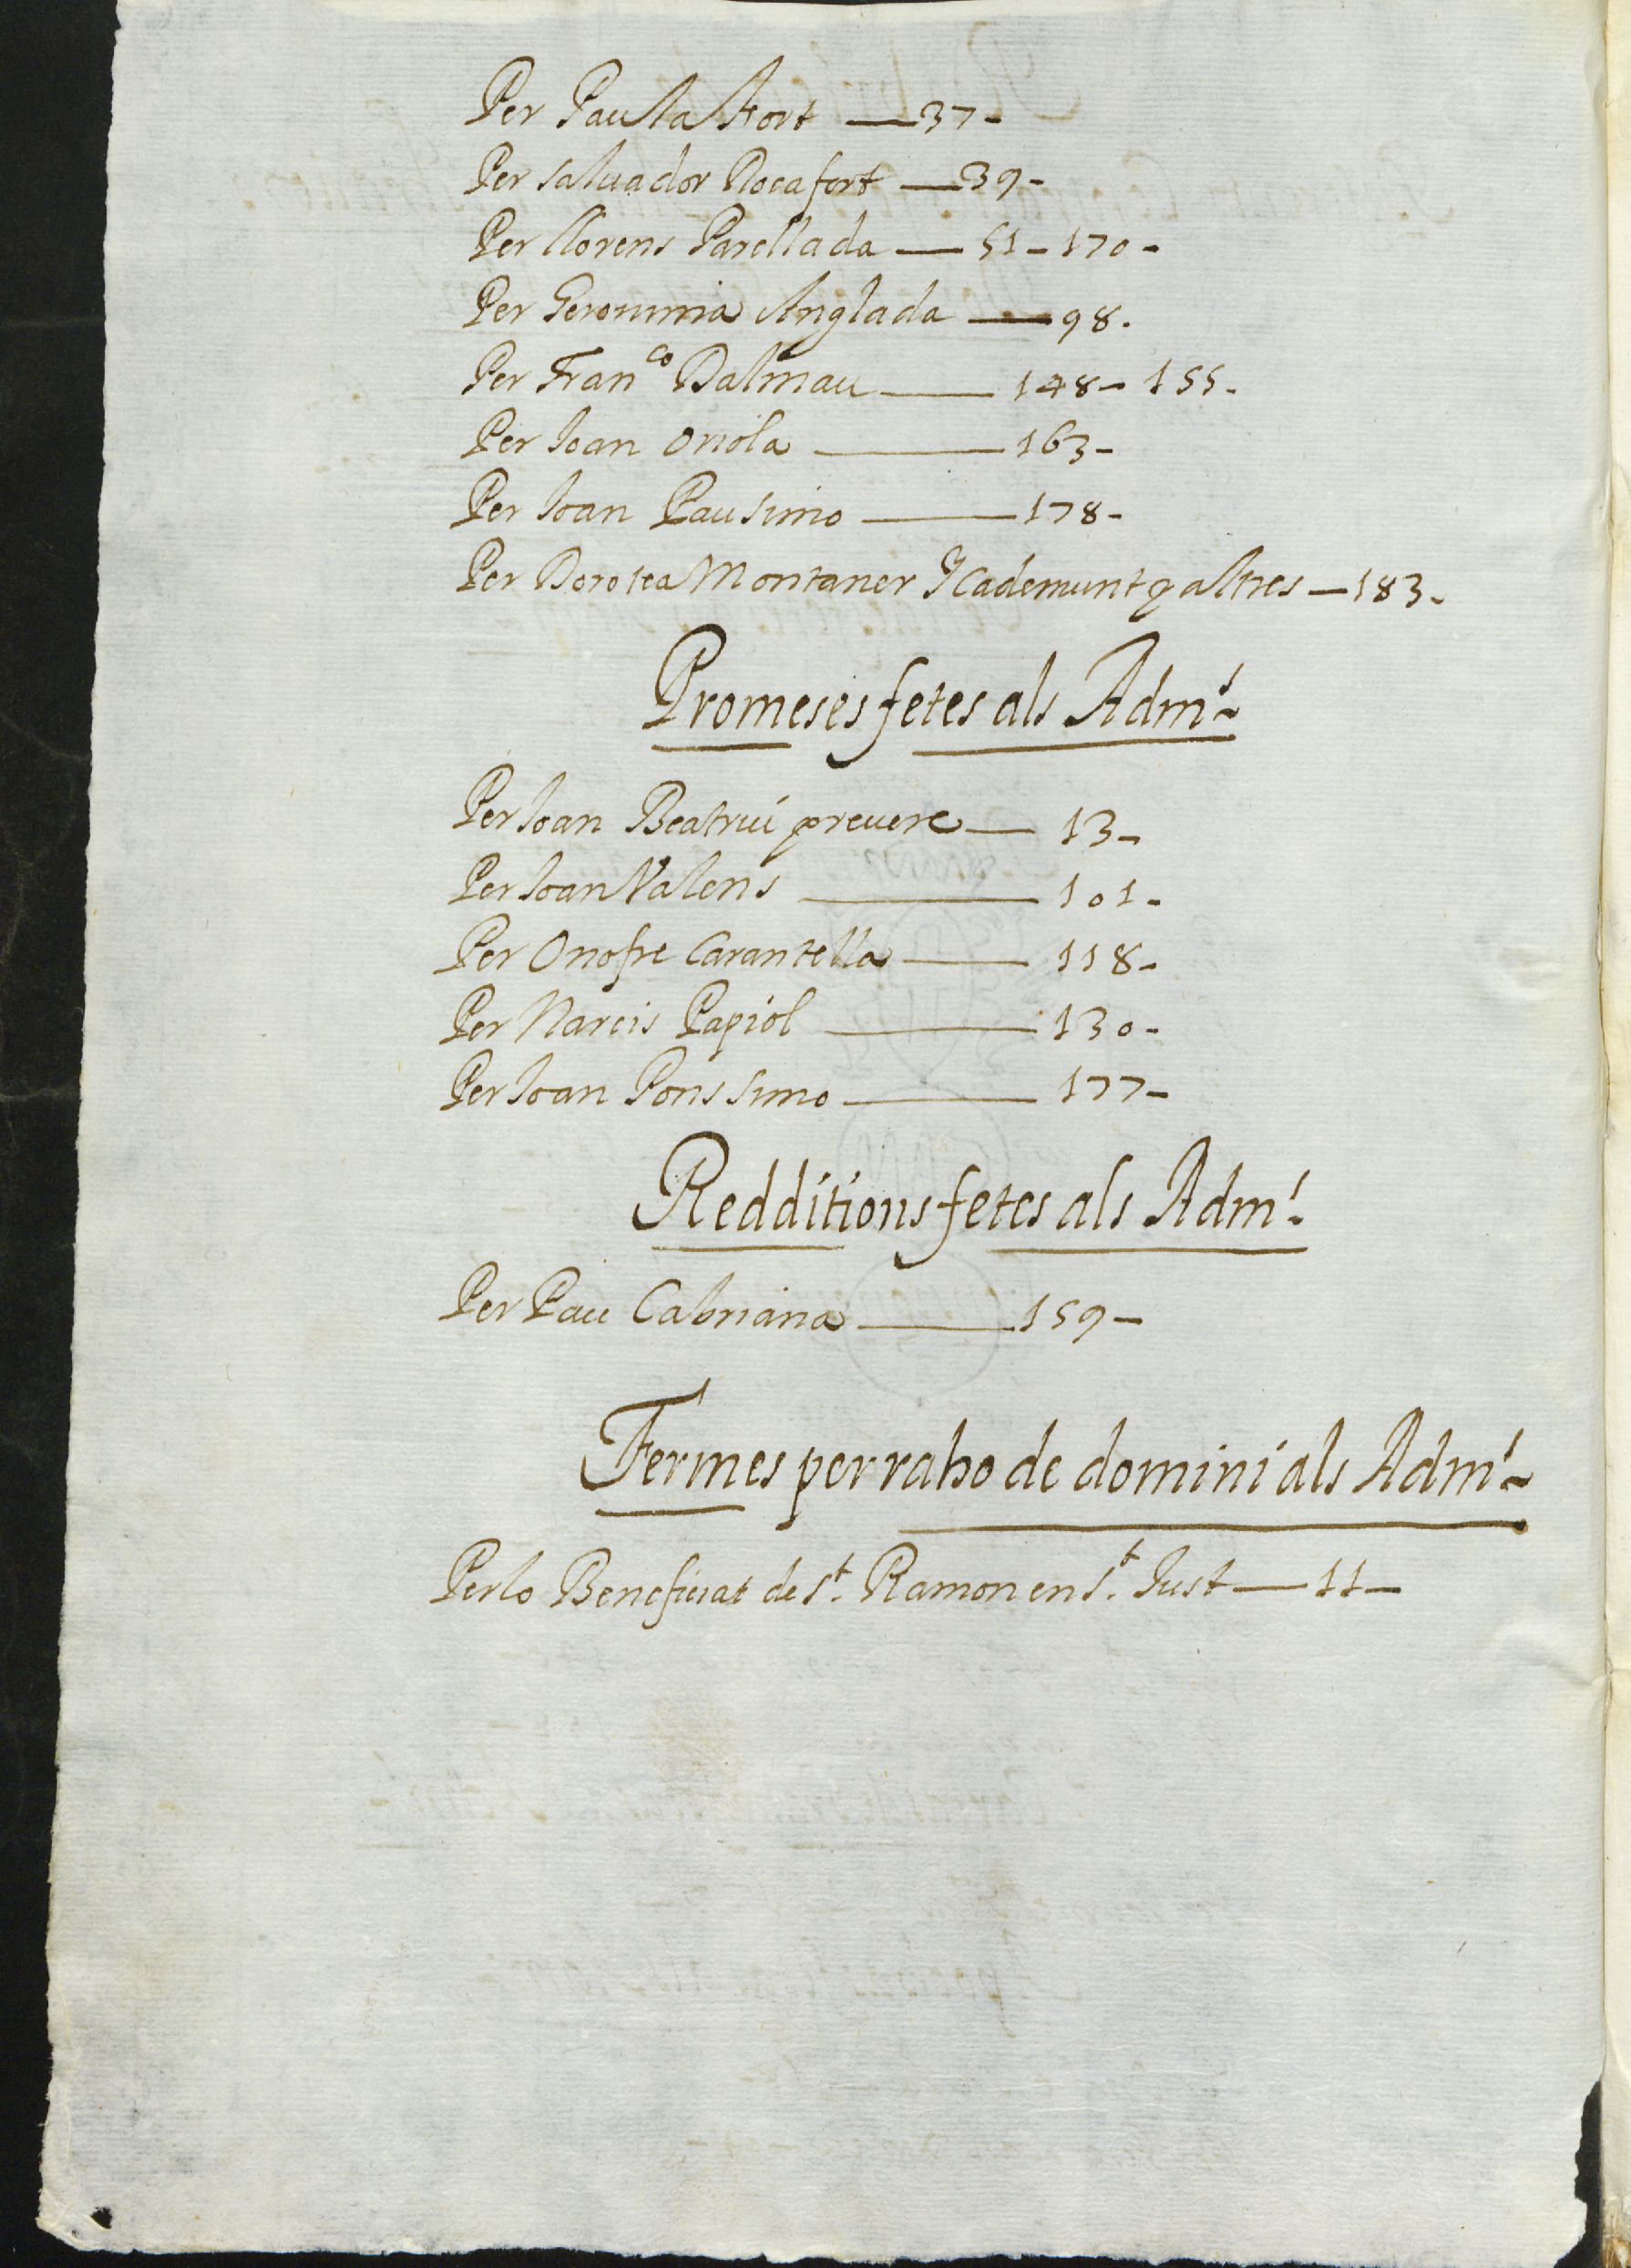 Per Paula Fort — 37 -
Per saluador Rocafort — 39 -
Per llorens Parellada — 51 - 170 -
Per Geronima Anglada — 98.
Per Fran.co Dalmau — 148 - 155 -
Per Joan Oriola — 163 -
Per Joan Pau simo — 178 -
Per Dorotea Montaner y Cademunt y altres — 183 -
Promeses fetes als Adm.rs
Per Joan Beatriu preuere — 13 -
Per Joan Valens — 101 -
Per Onofre Carantella — 118 -
Per Narcis Papiol — 130 -
Per Joan Pons simo — 177 -
Redditions fetes als Adm.rs
Per Pau Cabriana — 159 -
Fermes per raho de domini als Adm.rs
Per lo Beneficiat de St. Ramon en St. Just — 11 -